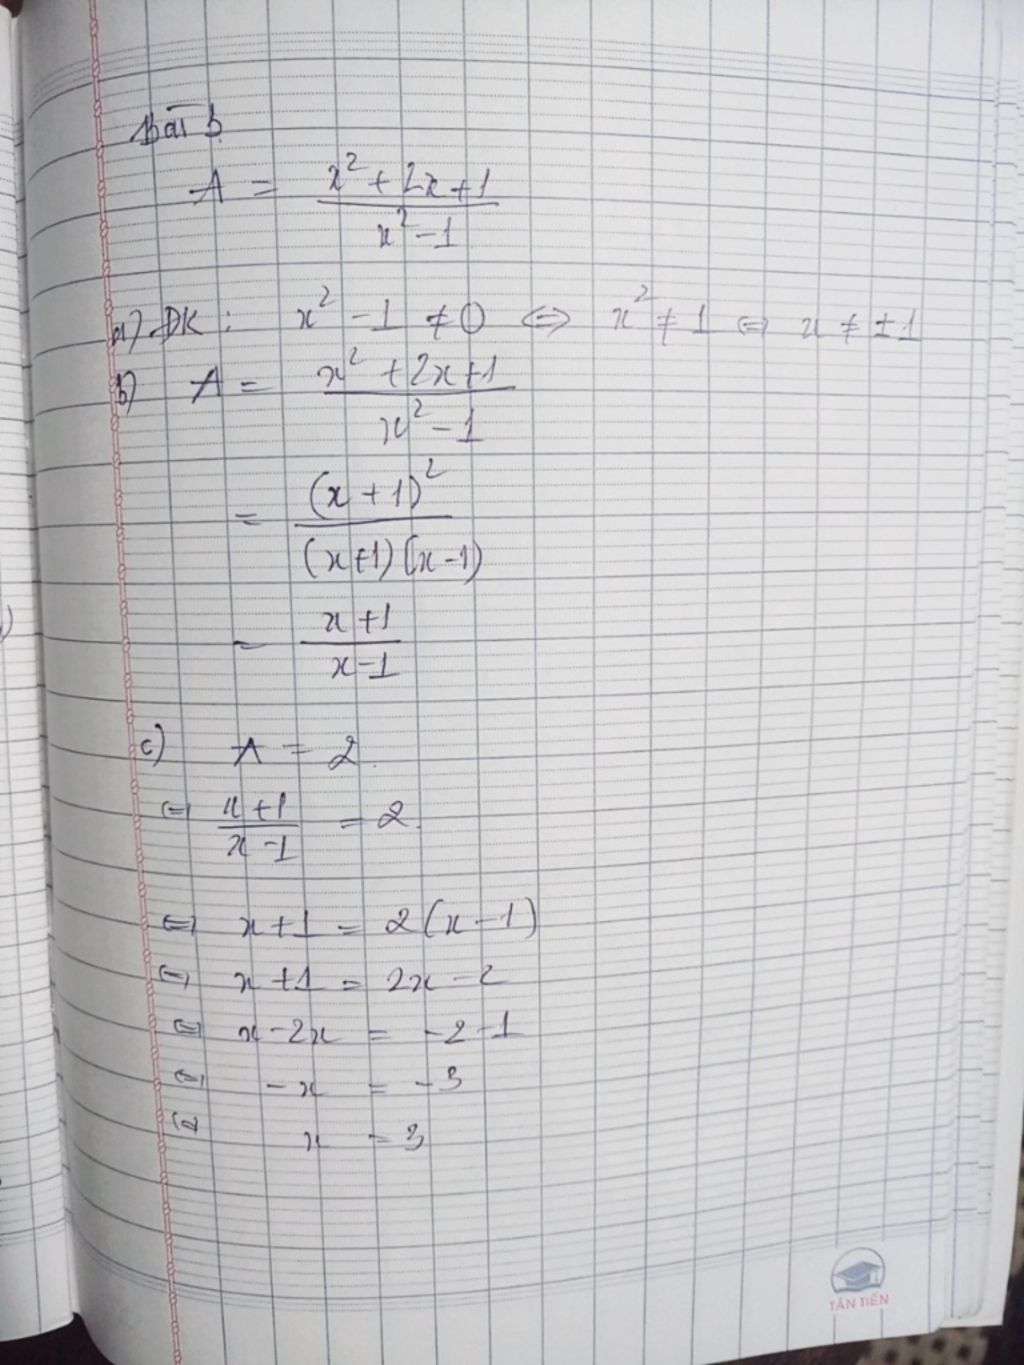 Bài 3
A = \frac{x^2 + 2x + 1}{x^2 - 1}
a) ĐK : x^2 - 1 ≠ 0 ⇔ x^2 ≠ 1 ⇔ x ≠ ±1
b) A = \frac{x^2 + 2x + 1}{x^2 - 1}
= \frac{(x + 1)^2}{(x + 1)(x - 1)}
= \frac{x + 1}{x - 1}
c) A = 2
⇔ \frac{x + 1}{x - 1} = 2
⇔ x + 1 = 2(x - 1)
⇔ x + 1 = 2x - 2
⇔ x - 2x = -2 - 1
⇔ -x = -3
⇔ x = 3
TÂN TIẾN